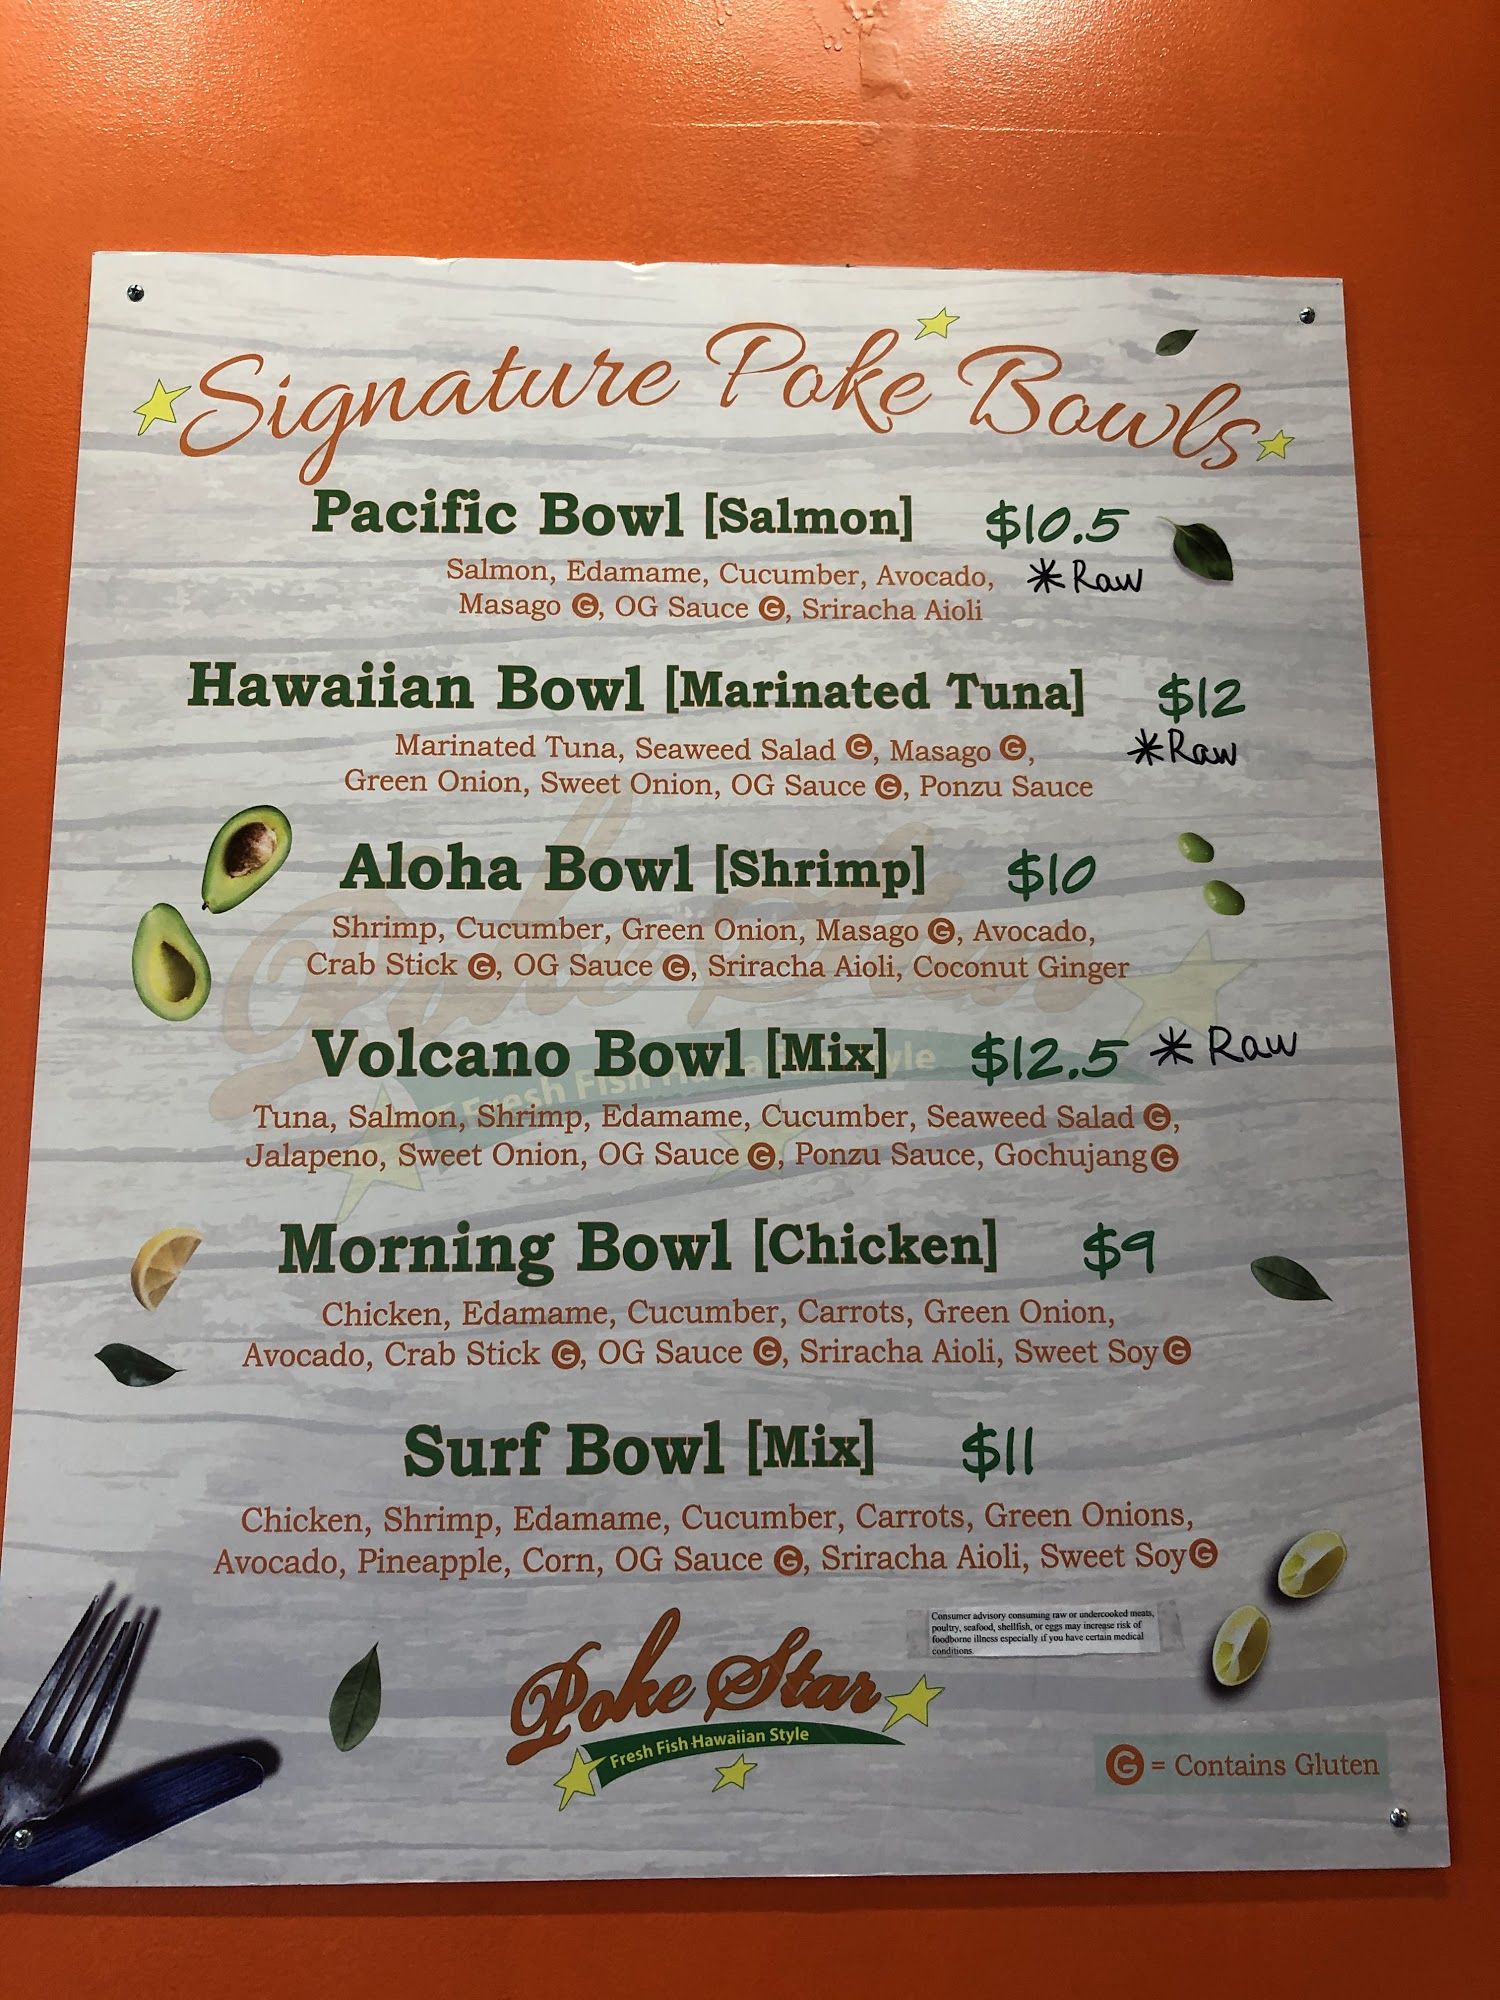 Signature Poke Bowls
Pacific Bowl [Salmon] $10.5
Salmon, Edamame, Cucumber, Avocado, *Raw
Masago G, OG Sauce G, Sriracha Aioli
Hawaiian Bowl [Marinated Tuna] $12
Marinated Tuna, Seaweed Salad G, Masago G, *Raw
Green Onion, Sweet Onion, OG Sauce G, Ponzu Sauce
Aloha Bowl [Shrimp] $10
Shrimp, Cucumber, Green Onion, Masago G, Avocado,
Crab Stick G, OG Sauce G, Sriracha Aioli, Coconut Ginger
Volcano Bowl [Mix] $12.5 *Raw
Tuna, Salmon, Shrimp, Edamame, Cucumber, Seaweed Salad G,
Jalapeno, Sweet Onion, OG Sauce G, Ponzu Sauce, Gochujang G
Morning Bowl [Chicken] $9
Chicken, Edamame, Cucumber, Carrots, Green Onion,
Avocado, Crab Stick G, OG Sauce G, Sriracha Aioli, Sweet Soy G
Surf Bowl [Mix] $11
Chicken, Shrimp, Edamame, Cucumber, Carrots, Green Onions,
Avocado, Pineapple, Corn, OG Sauce G, Sriracha Aioli, Sweet Soy G
Consumer advisory consuming raw or undercooked meats,
poultry, seafood, shellfish, or eggs may increase risk of
foodborne illness especially if you have certain medical
conditions.
Poke Star
Fresh Fish Hawaiian Style
G = Contains Gluten